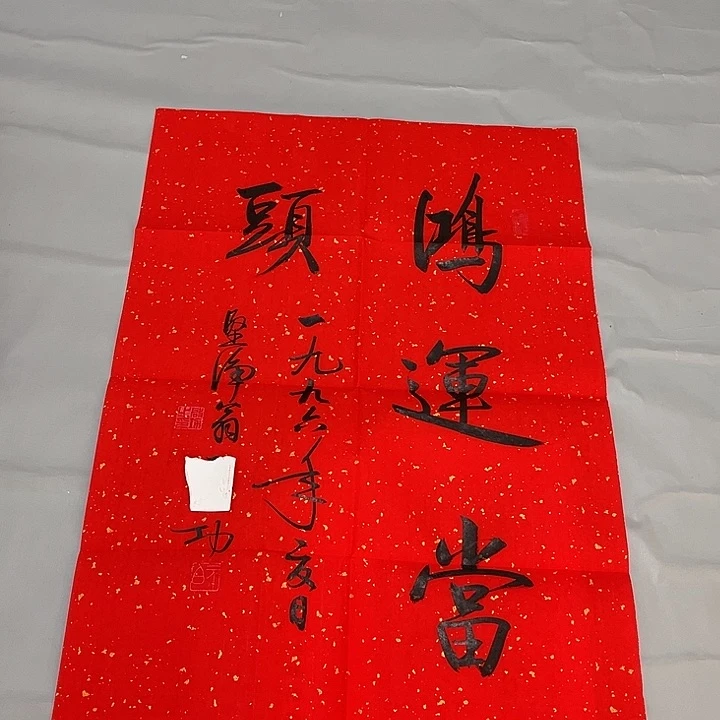 鴻運當
頭
一九九六年夏日
堅淨翁
功